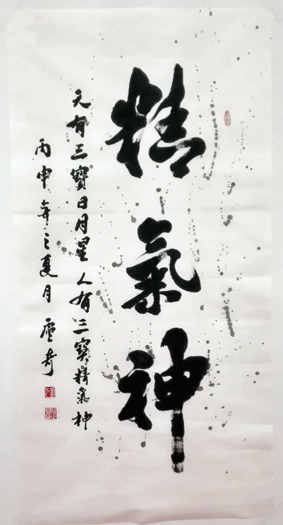 精氣神
天有三寶日月星人有三寶精氣神
丙申年之夏月唐奇